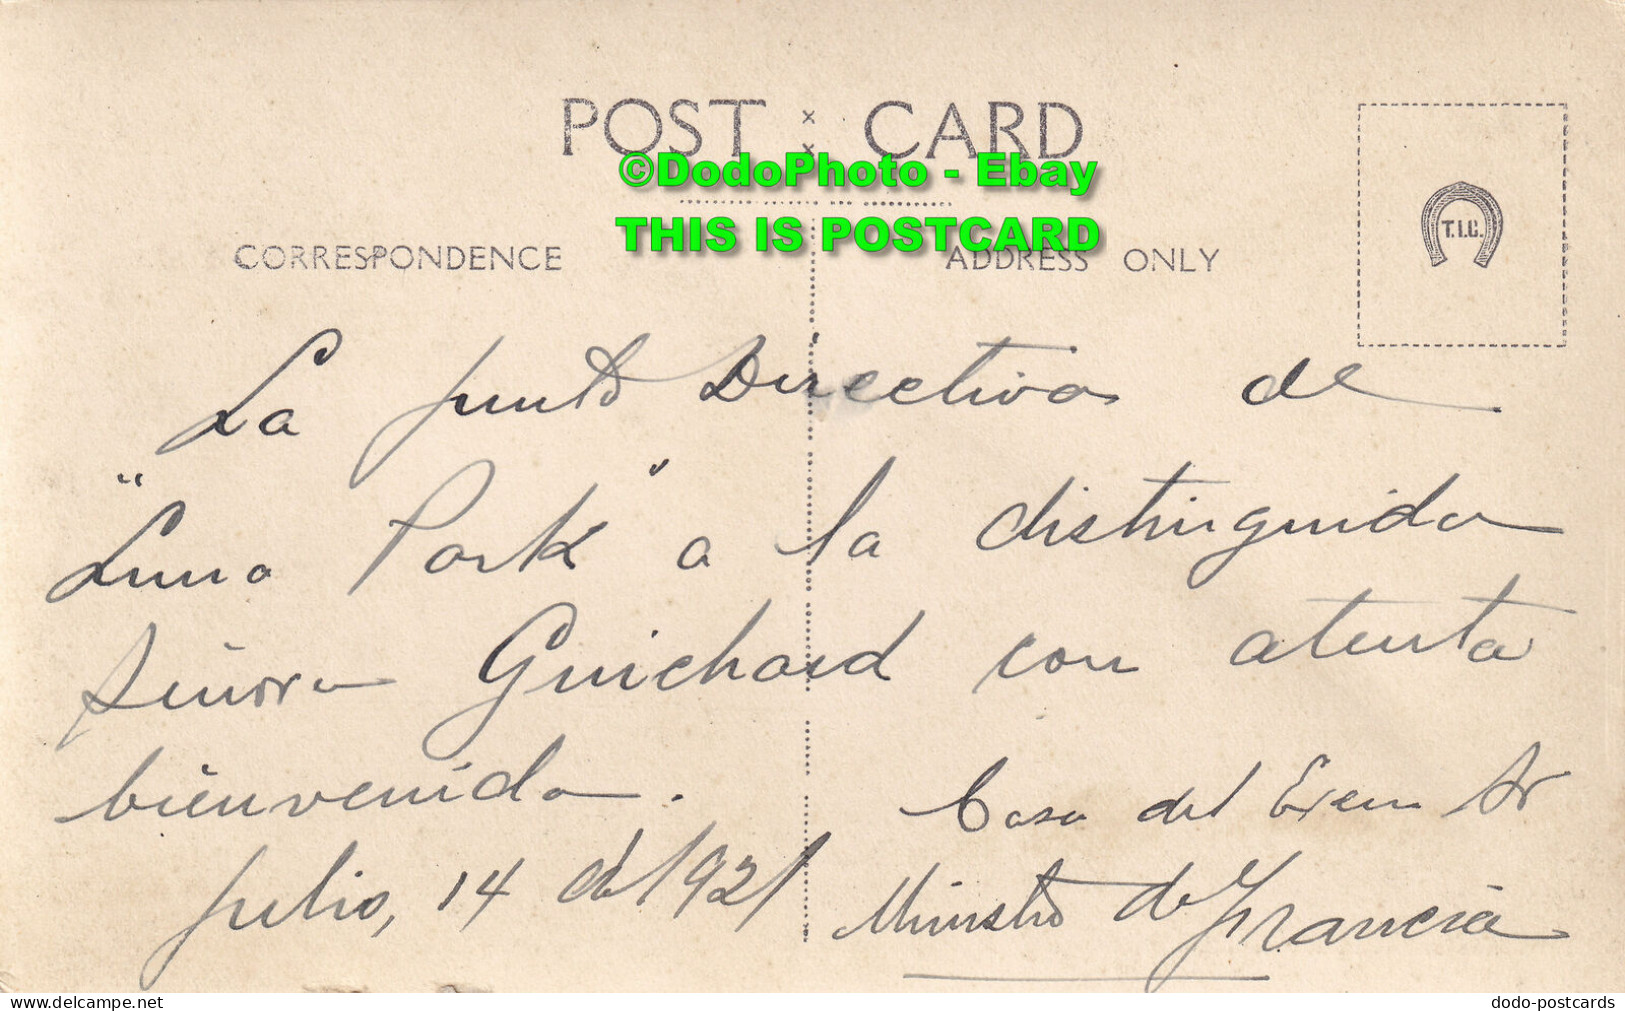 POST CARD
©DodoPhoto - Ebay
THIS IS POSTCARD
CORRESPONDENCE
ADDRESS ONLY
T.I.C.
La Junta Directiva de
"Luna Park" a la distinguida
Señora Guichard con atenta
bienvenida.
Julio, 14 de 1921
Casa del Exem Sr
Ministro de Francia
www.delcampe.net
dodo-postcards